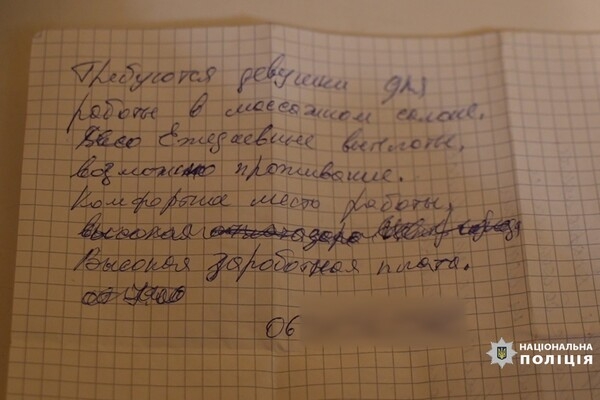 Требуются девушки для
работы в массажном салоне.
Ежедневные выплаты,
возможно проживание.
Комфортне место работы,
высокая
Высокая заработная плата.
06
НАЦІОНАЛЬНА
ПОЛІЦІЯ